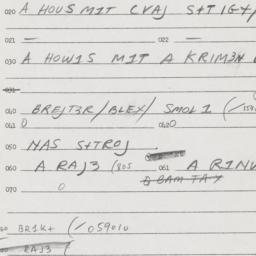 020 A HOUS M1T CVAJ S+TIG+/
021 — 022 —
030 A HOW1S M1T A KRIM3N
031
040 BREJT3R/BLEX/ SMOL1 (/15
041 0 0420
050 NAS S+TROJ
060 A RAJ3 (805 061 A R1NV
0 BAM TAY
070 0
BR1K+ (/05901U
RAJ3 (